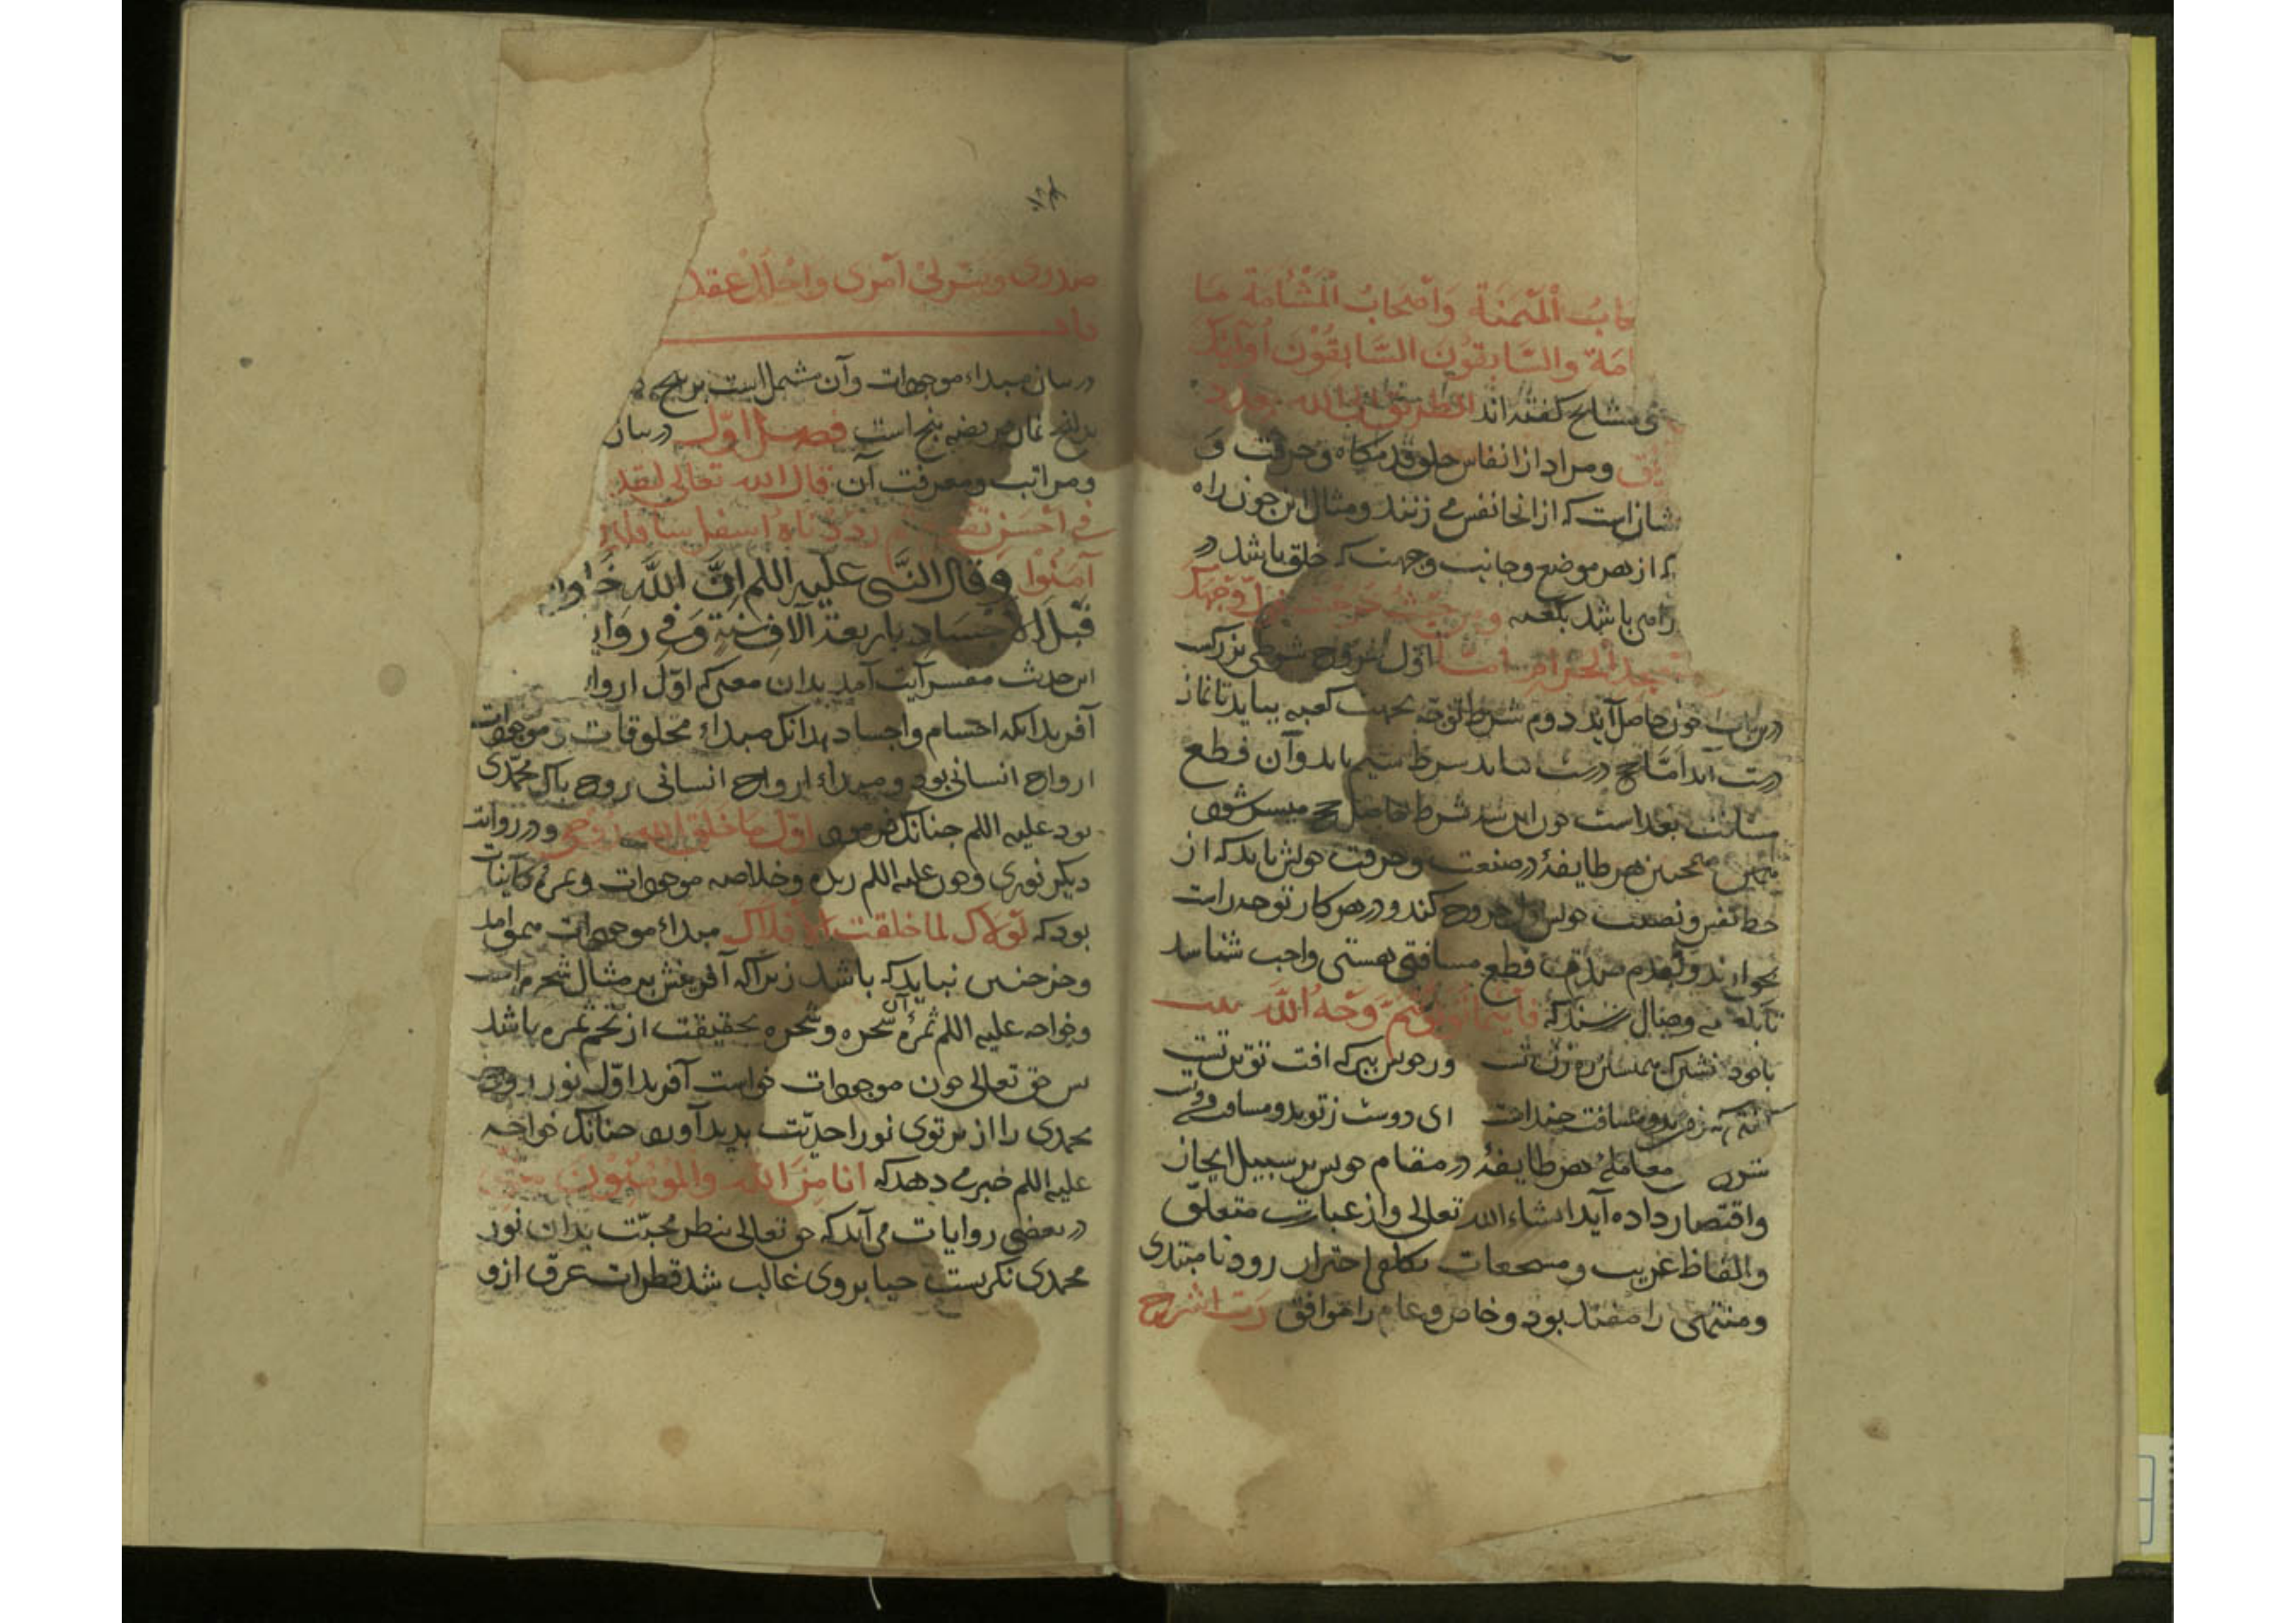 ـحابُ الْمَيْمَنَةِ وَاَصْحَابُ الْمَشْاَمَةِ مَا
امَةِ والسَّابِقُونَ السَّابِقُوْنَ اُولٰئِكَ
ی مشایخ گفته‌اند الطریق الی الله بعدد
ومراد از انفاس خلق قدمگاه و حرفت و
شان است که از انجا نفس می زنند ومثال این چون راه
که از هر موضع وجانب وجهت که خلق باشد در
راهی باشد بکعبه ومن حیث خرجت فول وجهک
ـجد الحرام اما اول خروج شرطی بزرکست
درین باب چون حاصل آید دوم شرط توجه بجهت کعبه بباید تا نماز
درست آید امّا حج درست نیاید سرط سیم باید و آن قطع
مسافت بعد است چون این سه شرط حاصل حج میسر شود
همچنین هر طایفهٔ در صنعت و حرفت خویش باید که از
حظ نفس و نصیب خویش اول خروج کند و در هر کار توجه راست
وبقدم صدق قطع مسافتی هستی واجب شناسد
تا بکعبه وصال رسند که فَاَیْنَمَا تُوَلُّوا فَثَمَّ وَجْهُ اللّٰهِ بیت
ای دوست ز تو بدو مسافت
معاملهٔ هر طایفهٔ در مقام خویش بر سبیل ایجاز
واقتصار داده آید انشاء الله تعالی واز عبارت متعلّق
والفاظ غریب ومسجعات تکلف احتراز رود تا مبتدی
ومنتهی را مفید بود و خاص و عام را موافق رَبِّ اشْرَح
صدری وَیَسِّرْلِیْ اَمْری وَاحْلُلْ عقد
در بیان مبداء موجودات وآن مشتمل است بر پنج
نماز فریضه پنج است فصل اوّل در بیان
ومراتب ومعرفت آن قال الله تعالی لقد
فی اَحْسَنِ تقویم ثم رَدَدْنَاهُ اَسفلَ سافلین
آمَنُوا وَقال النَّبی علیه اللم اِنَّ اللّٰهَ خَلَـ
قَبْلَ الاَجْسَادِ باربعة آلافِ سَنَةٍ وَفِی رِوَایـ
این حدیث مفسر آیت آمد بدان معنی که اوّل اروا
آفرید انکه اجسام واجساد بدانک مبداء مخلوقات وموجودات
ارواح انسانی بود و مبداء ارواح انسانی روح پاک محمّدی
بود علیه اللم چنانک فرمود اوّل مَا خَلَقَ الله رُوحی و در روایت
دیکر نوری وچون علیه اللم زبده وخلاصه موجودات و ثمرهٔ کاینات
بود که لَوْلاک لما خلقت الاَفْلاَکَ مبداء موجودات هم او آمد
وجز چنین نباید که باشد زیراکه آفرینش بر مثال شجره است
وخواجه علیه اللم ثمرهٔ آن شجره و شجره بحقیقت از تخم ثمره باشد
پس حق تعالی چون موجودات خواست آفرید اوّل نور روح
محمدی را از پرتوی نور احدیّت پدید آورد چنانک خواجه
علیه اللم خبر می دهد که انا مِنَ الله والمُؤْمِنُوْنَ مِنّی
در بعضی روایات می آید که حق تعالی بنظر محبّت بدان نور
محمدی نکریست حیا بر وی غالب شد قطرات عرق ازو